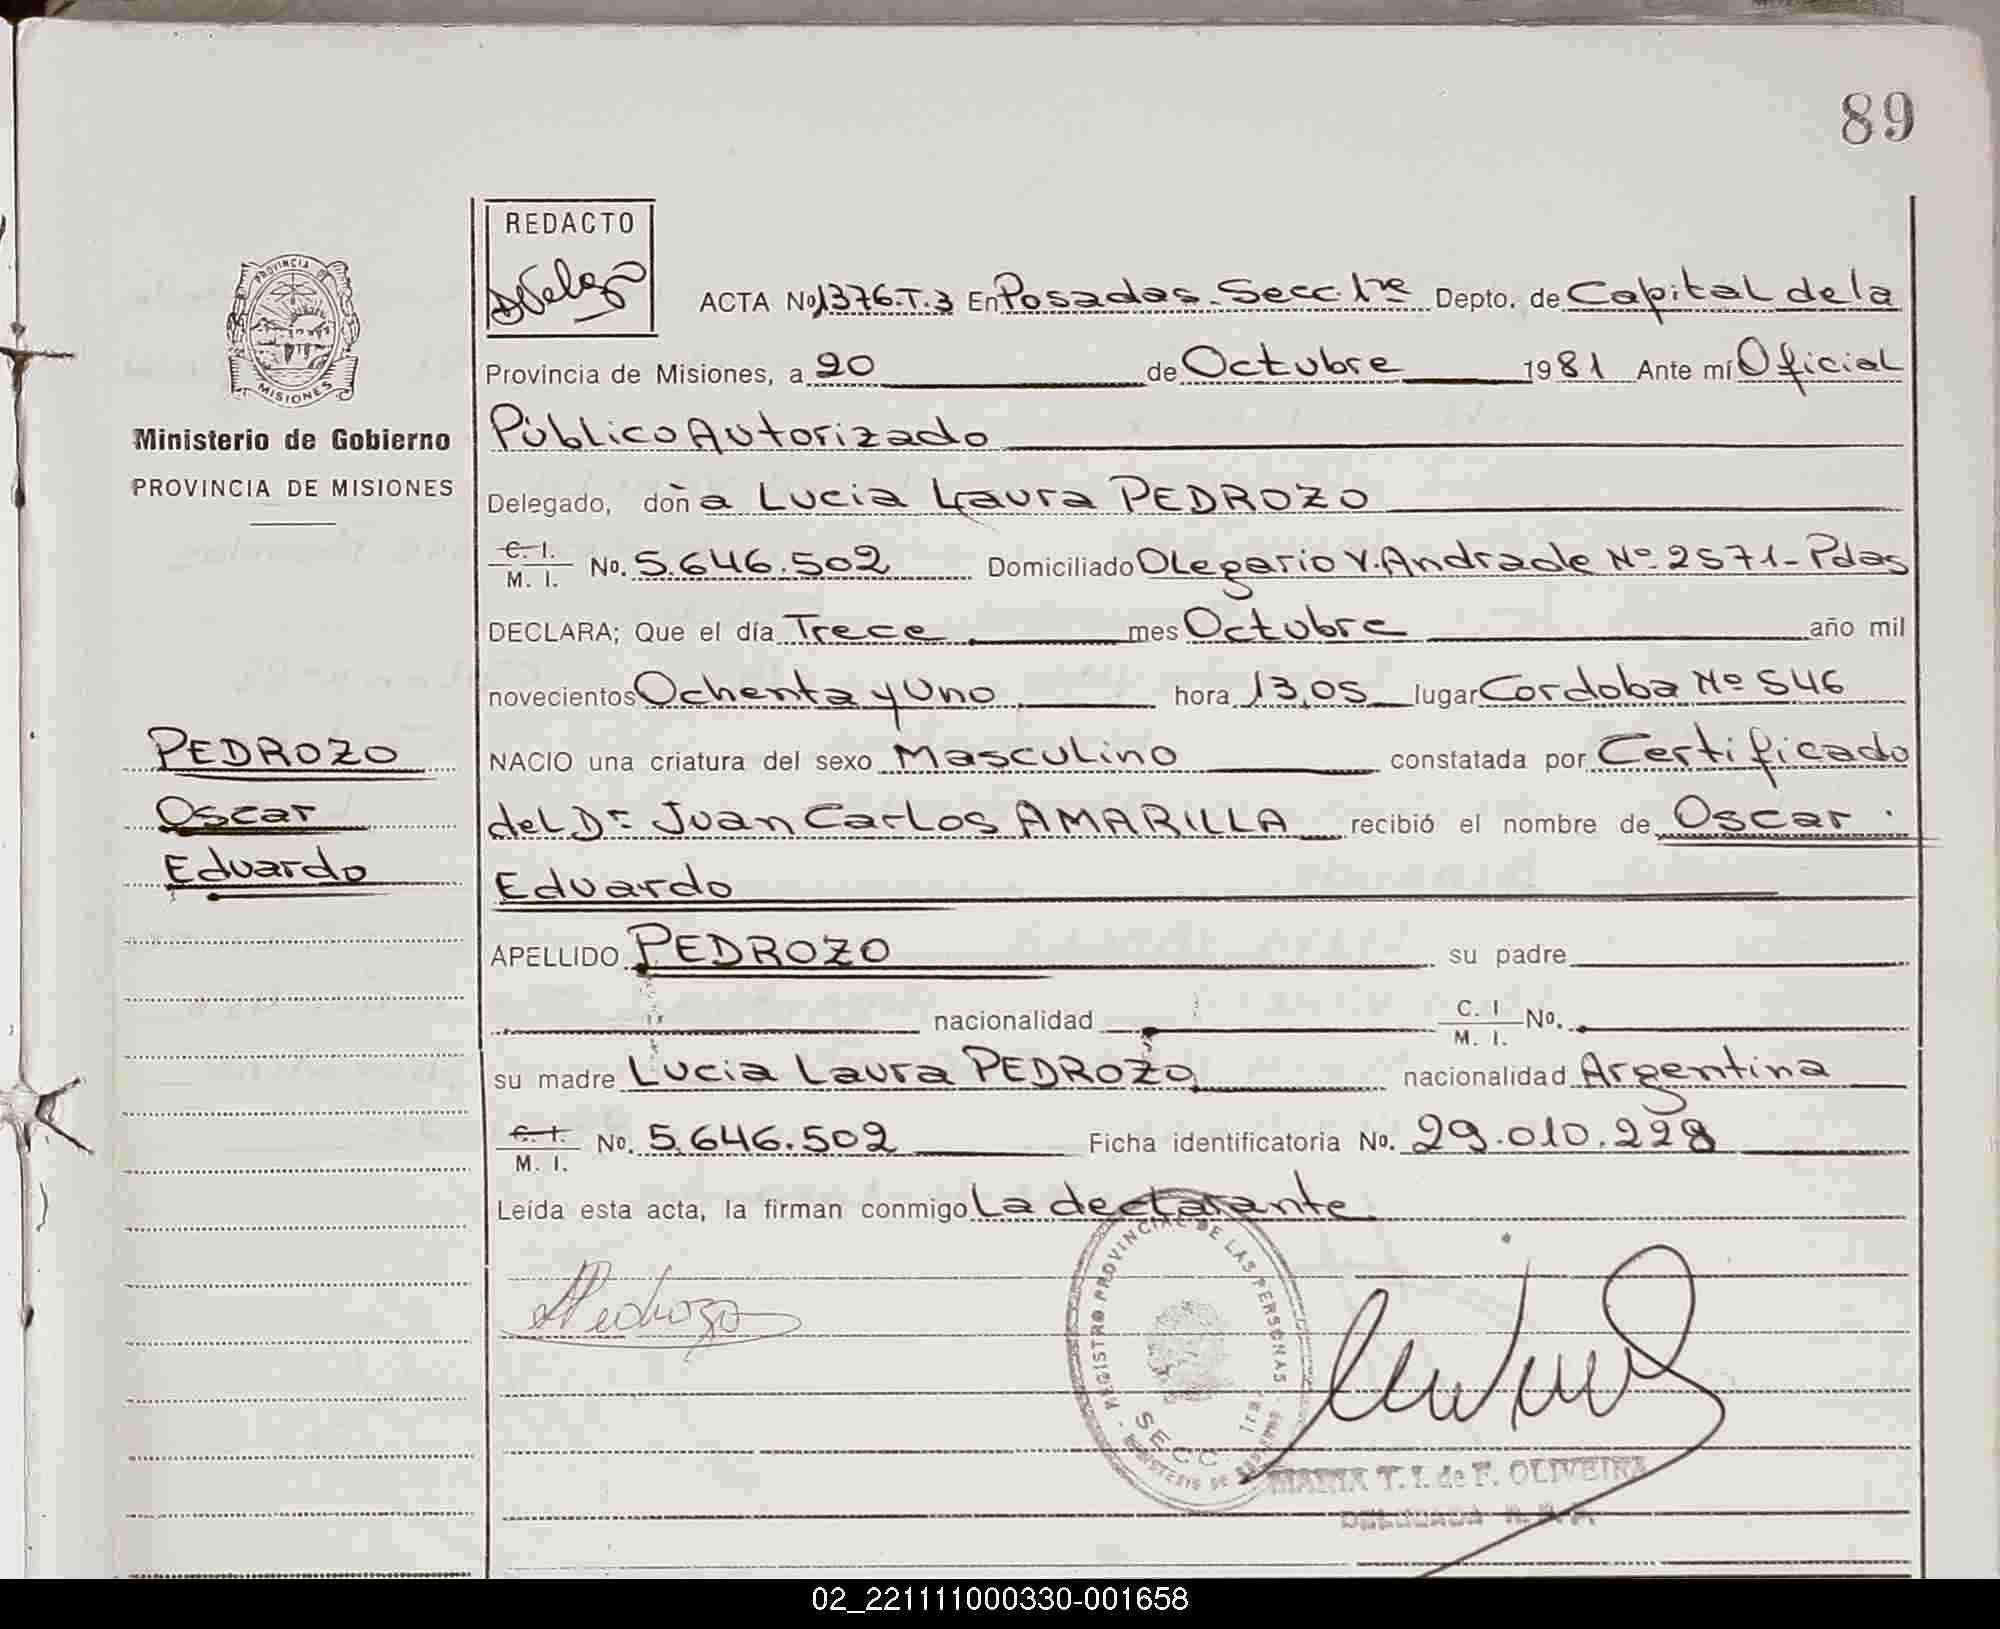 89
REDACTO
ACTA No 1376.T.3 En Posadas. Secc. 1ra Depto. de Capital de la
Provincia de Misiones, a 20 de Octubre 1981 Ante mí Oficial
Público Autorizado
Delegado, doña Lucia Laura PEDROZO
C. I. / M. I. No. 5.646.502 Domiciliado Olegario V. Andrade Nº 2571 - Pdas
DECLARA; Que el día Trece mes Octubre año mil
novecientos Ochenta y Uno hora 13,05 lugar Cordoba Nº 546
NACIO una criatura del sexo Masculino constatada por Certificado
del Dr. Juan Carlos AMARILLA recibió el nombre de Oscar
Eduardo
APELLIDO PEDROZO su padre
nacionalidad C. I / M. I. No.
su madre Lucia Laura PEDROZO nacionalidad Argentina
C. I. / M. I. No. 5.646.502 Ficha identificatoria No. 29.010.228
Leída esta acta, la firman conmigo La declarante
PROVINCIA DE
MISIONES
Ministerio de Gobierno
PROVINCIA DE MISIONES
PEDROZO
Oscar
Eduardo
Pedrozo
REGISTRO PROVINCIAL DE LAS PERSONAS
SECC. 1ra.
MINISTERIO DE GOBIERNO
MARIA T. I. de F. OLIVEIRA
DELEGADA R. P. P.
02_221111000330-001658